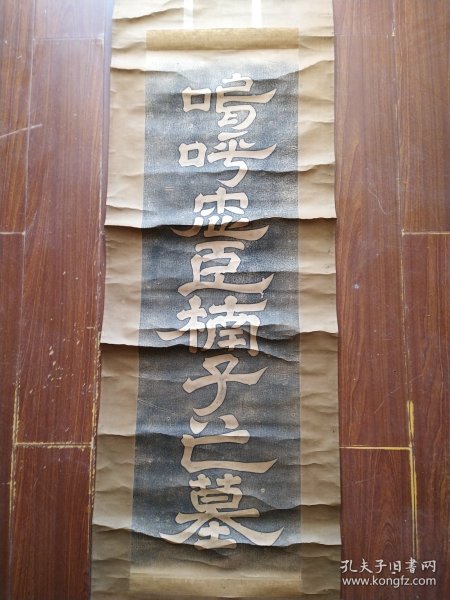 嗚呼忠臣楠子之墓
孔夫子旧书网
www.kongfz.com